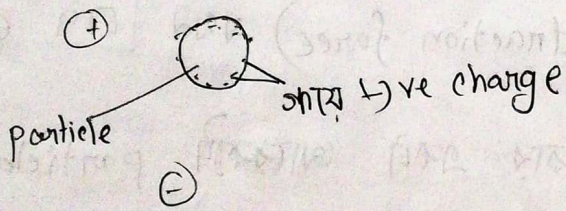 (+)
গায় (-) ve charge
particle
(-)